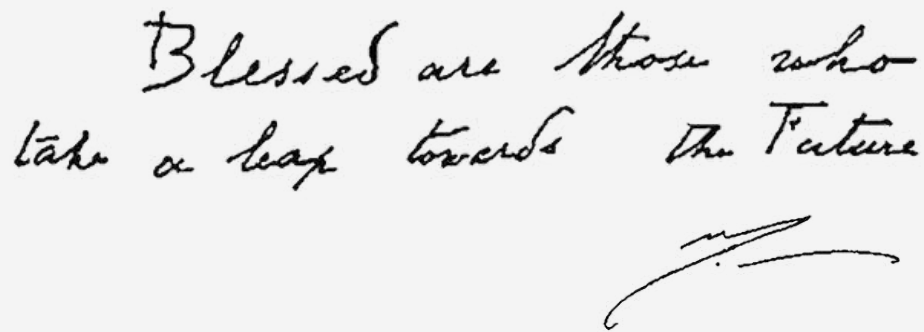 Blessed are those who
take a leap towards the Future